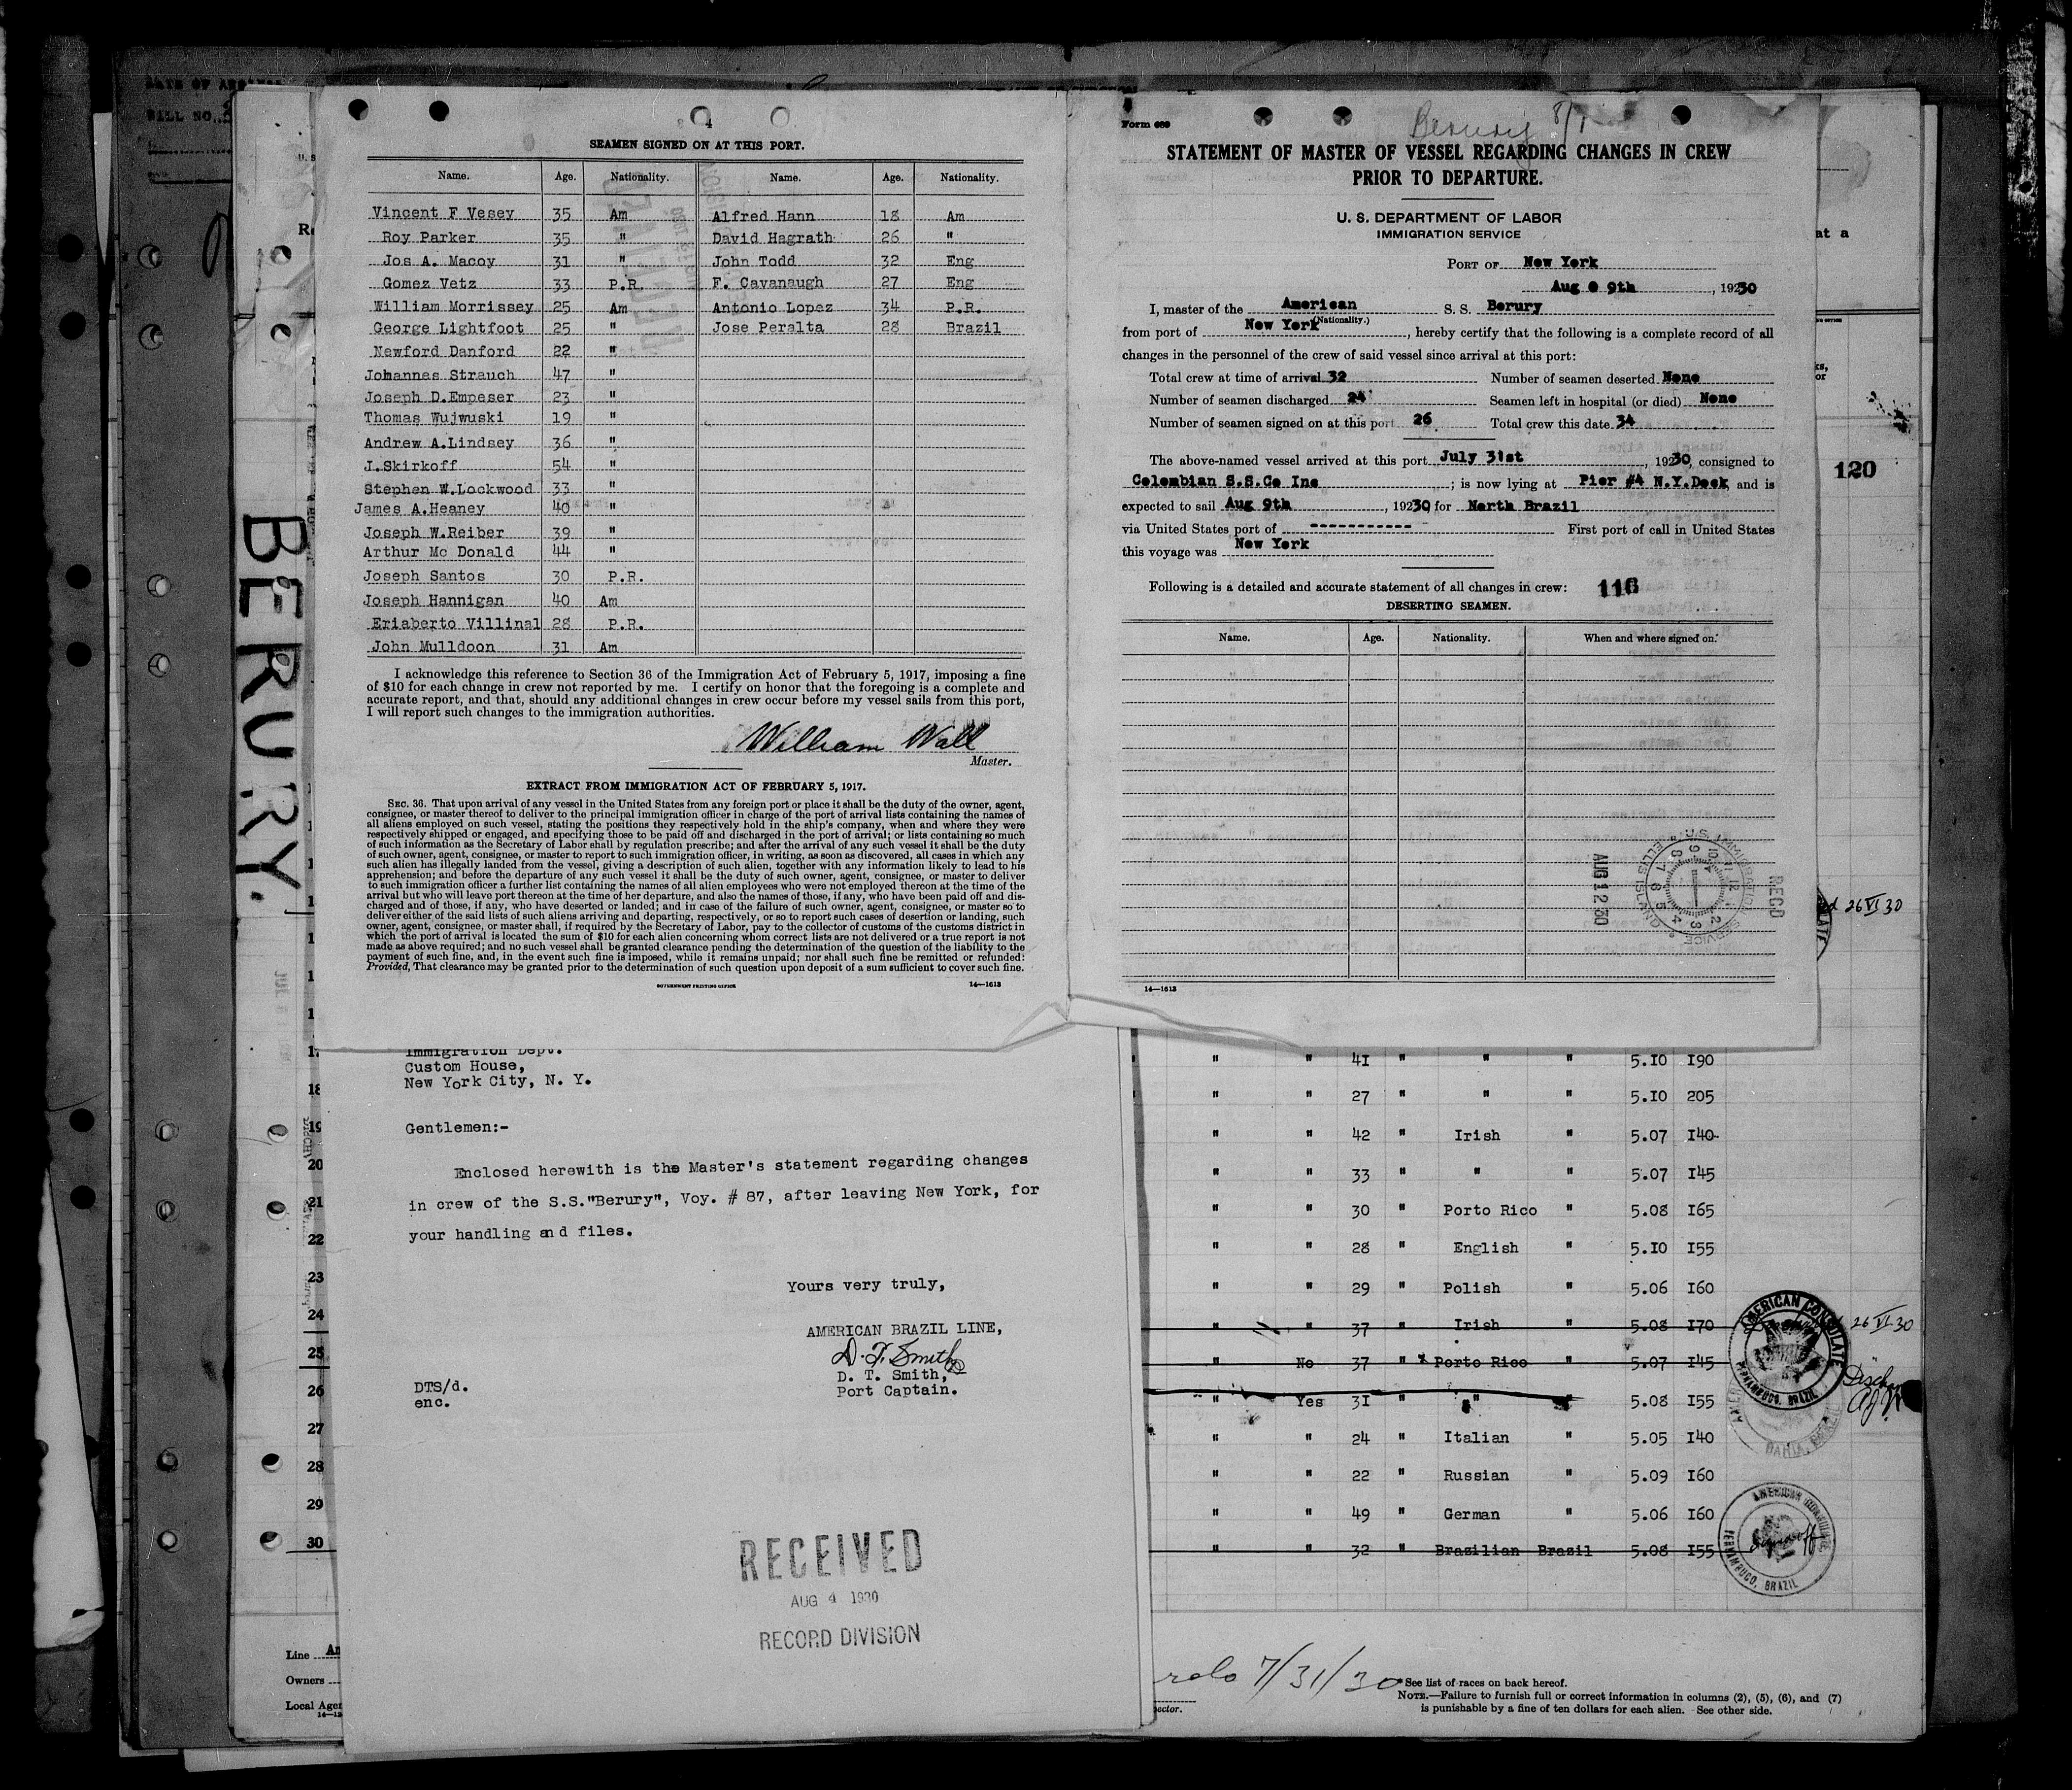 BILL NO.
BERURY.
4
SEAMEN SIGNED ON AT THIS PORT.
Name. Age. Nationality. Name. Age. Nationality.
Vincent F Vesey 35 Am Alfred Hann 18 Am
Roy Parker 35 " David Hagrath 26 "
Jos A. Macoy 31 " John Todd 32 Eng
Gomez Vetz 33 P.R. F. Cavanaugh 27 Eng
William Morrissey 25 Am Antonio Lopez 34 P.R.
George Lightfoot 25 " Jose Peralta 28 Brazil
Newford Danford 22 "
Johannes Strauch 47 "
Joseph D.Empeser 23 "
Thomas Wujwuski 19 "
Andrew A.Lindsey 36 "
J.Skirkoff 54 "
Stephen W.Lockwood 33 "
James A.Heaney 40 "
Joseph W.Reiber 39 "
Arthur Mc Donald 44 "
Joseph Santos 30 P.R.
Joseph Hannigan 40 Am
Eriaberto Villinal 28 P.R.
John Mulldoon 31 Am
I acknowledge this reference to Section 36 of the Immigration Act of February 5, 1917, imposing a fine
of $10 for each change in crew not reported by me. I certify on honor that the foregoing is a complete and
accurate report, and that, should any additional changes in crew occur before my vessel sails from this port,
I will report such changes to the immigration authorities.
William Wall
Master.
EXTRACT FROM IMMIGRATION ACT OF FEBRUARY 5, 1917.
SEC. 36. That upon arrival of any vessel in the United States from any foreign port or place it shall be the duty of the owner, agent,
consignee, or master thereof to deliver to the principal immigration officer in charge of the port of arrival lists containing the names of
all aliens employed on such vessel, stating the positions they respectively hold in the ship's company, when and where they were
respectively shipped or engaged, and specifying those to be paid off and discharged in the port of arrival; or lists containing so much
of such information as the Secretary of Labor shall by regulation prescribe; and after the arrival of any such vessel it shall be the duty
of such owner, agent, consignee, or master to report to such immigration officer, in writing, as soon as discovered, all cases in which any
such alien has illegally landed from the vessel, giving a description of such alien, together with any information likely to lead to his
apprehension; and before the departure of any such vessel it shall be the duty of such owner, agent, consignee, or master to deliver
to such immigration officer a further list containing the names of all alien employees who were not employed thereon at the time of the
arrival but who will leave port thereon at the time of her departure, and also the names of those, if any, who have been paid off and dis-
charged and of those, if any, who have deserted or landed; and in case of the failure of such owner, agent, consignee, or master so to
deliver either of the said lists of such aliens arriving and departing, respectively, or so to report such cases of desertion or landing, such
owner, agent, consignee, or master shall, if required by the Secretary of Labor, pay to the collector of customs of the customs district in
which the port of arrival is located the sum of $10 for each alien concerning whom correct lists are not delivered or a true report is not
made as above required; and no such vessel shall be granted clearance pending the determination of the question of the liability to the
payment of such fine, and, in the event such fine is imposed, while it remains unpaid; nor shall such fine be remitted or refunded:
Provided, That clearance may be granted prior to the determination of such question upon deposit of a sum sufficient to cover such fine.
GOVERNMENT PRINTING OFFICE 14—1613
Form 689
Berury 8/1
STATEMENT OF MASTER OF VESSEL REGARDING CHANGES IN CREW
PRIOR TO DEPARTURE.
U. S. DEPARTMENT OF LABOR
IMMIGRATION SERVICE
PORT OF New York
Aug 9th, 1930
I, master of the American S. S. Berury
(Nationality.)
from port of New York, hereby certify that the following is a complete record of all
changes in the personnel of the crew of said vessel since arrival at this port:
Total crew at time of arrival 32 Number of seamen deserted None
Number of seamen discharged 24 Seamen left in hospital (or died) None
Number of seamen signed on at this port 26 Total crew this date 34
The above-named vessel arrived at this port July 31st, 1930, consigned to
Colombian S.S.Co Inc; is now lying at Pier #4 N.Y.Dock, and is
expected to sail Aug 9th, 1930 for North Brazil
via United States port of ------------ First port of call in United States
this voyage was New York
Following is a detailed and accurate statement of all changes in crew: 116
DESERTING SEAMEN.
Name. Age. Nationality. When and where signed on.
U.S. IMMIGRATION SERVICE
ELLIS ISLAND
REC'D
AUG 12 30
14—1613
at a
120
26 VI 30
Immigration Dept.
Custom House,
New York City, N. Y.
Gentlemen:-
Enclosed herewith is the Master's statement regarding changes
in crew of the S.S."Berury", Voy. # 87, after leaving New York, for
your handling and files.
Yours very truly,
AMERICAN BRAZIL LINE,
D. T. Smith
D. T. Smith,
Port Captain.
DTS/d.
enc.
RECEIVED
AUG 4 1930
RECORD DIVISION
18
19
20
21
22
23
24
25
26
27
28
29
30
" " 41 " " " 5.10 190
" " 27 " " " 5.10 205
" " 42 " Irish " 5.07 140
" " 33 " " " 5.07 145
" " 30 " Porto Rico " 5.08 165
" " 28 " English " 5.10 155
" " 29 " Polish " 5.06 160
" " 37 " Irish " 5.08 170
" No 37 " Porto Rico " 5.07 145
" Yes 31 " " " 5.08 155
" " 24 " Italian " 5.05 140
" " 22 " Russian " 5.09 160
" " 49 " German " 5.06 160
" " 32 " Brazilian Brazil 5.08 155
AMERICAN CONSULATE
PERNAMBUCO, BRAZIL
26 VI 30
BAHIA, BRAZIL
PERNAMBUCO, BRAZIL
Line
Owners
Local Agen
7/31/30
*See list of races on back hereof.
NOTE.—Failure to furnish full or correct information in columns (2), (5), (6), and (7)
is punishable by a fine of ten dollars for each alien. See other side.